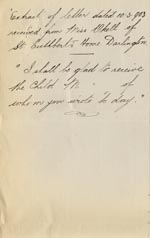 Extract of letter dated 10-3-903
received from Miss Chell of
St Cuthbert's Home Darlington
"I shall be glad to receive
the Child M of
whom you wrote to day."